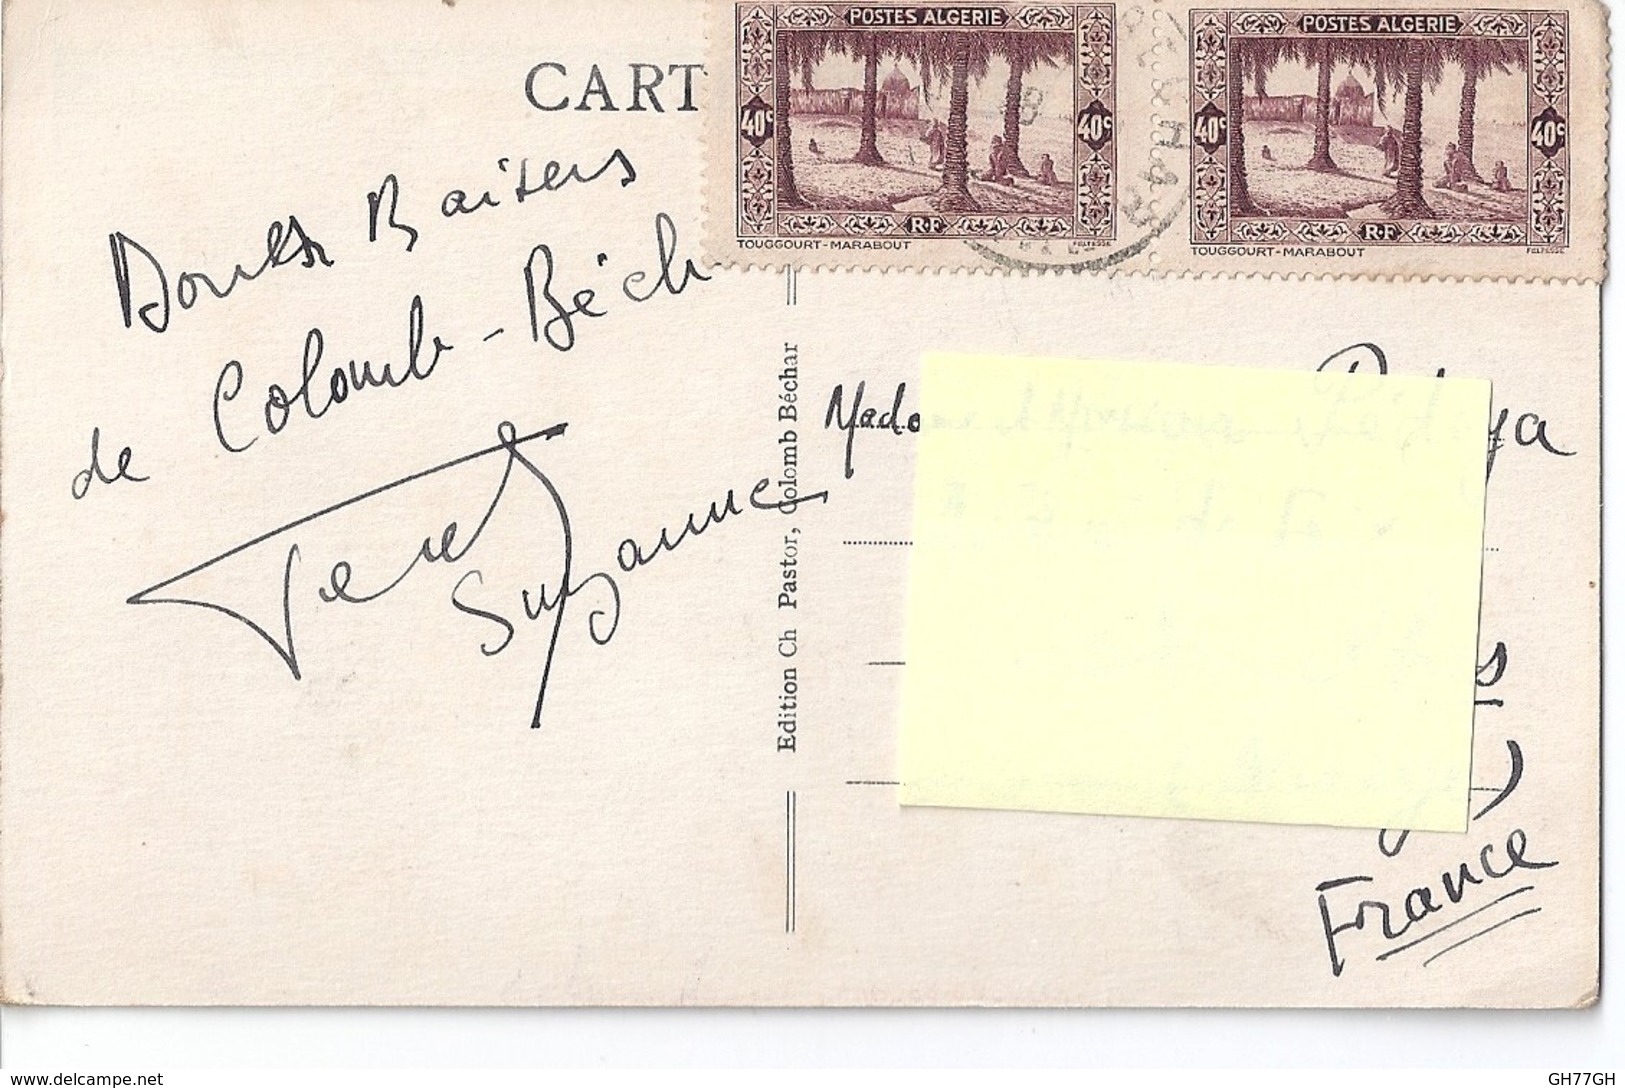 CART
POSTES ALGERIE
40c
40c
RF
TOUGGOURT-MARABOUT
POSTES ALGERIE
40c
40c
RF
TOUGGOURT-MARABOUT
Baisers
de Colomb-Béch
Suzanne
Edition Ch Pastor, Colomb Béchar
Mada
ya
France
GH77GH
www.delcampe.net